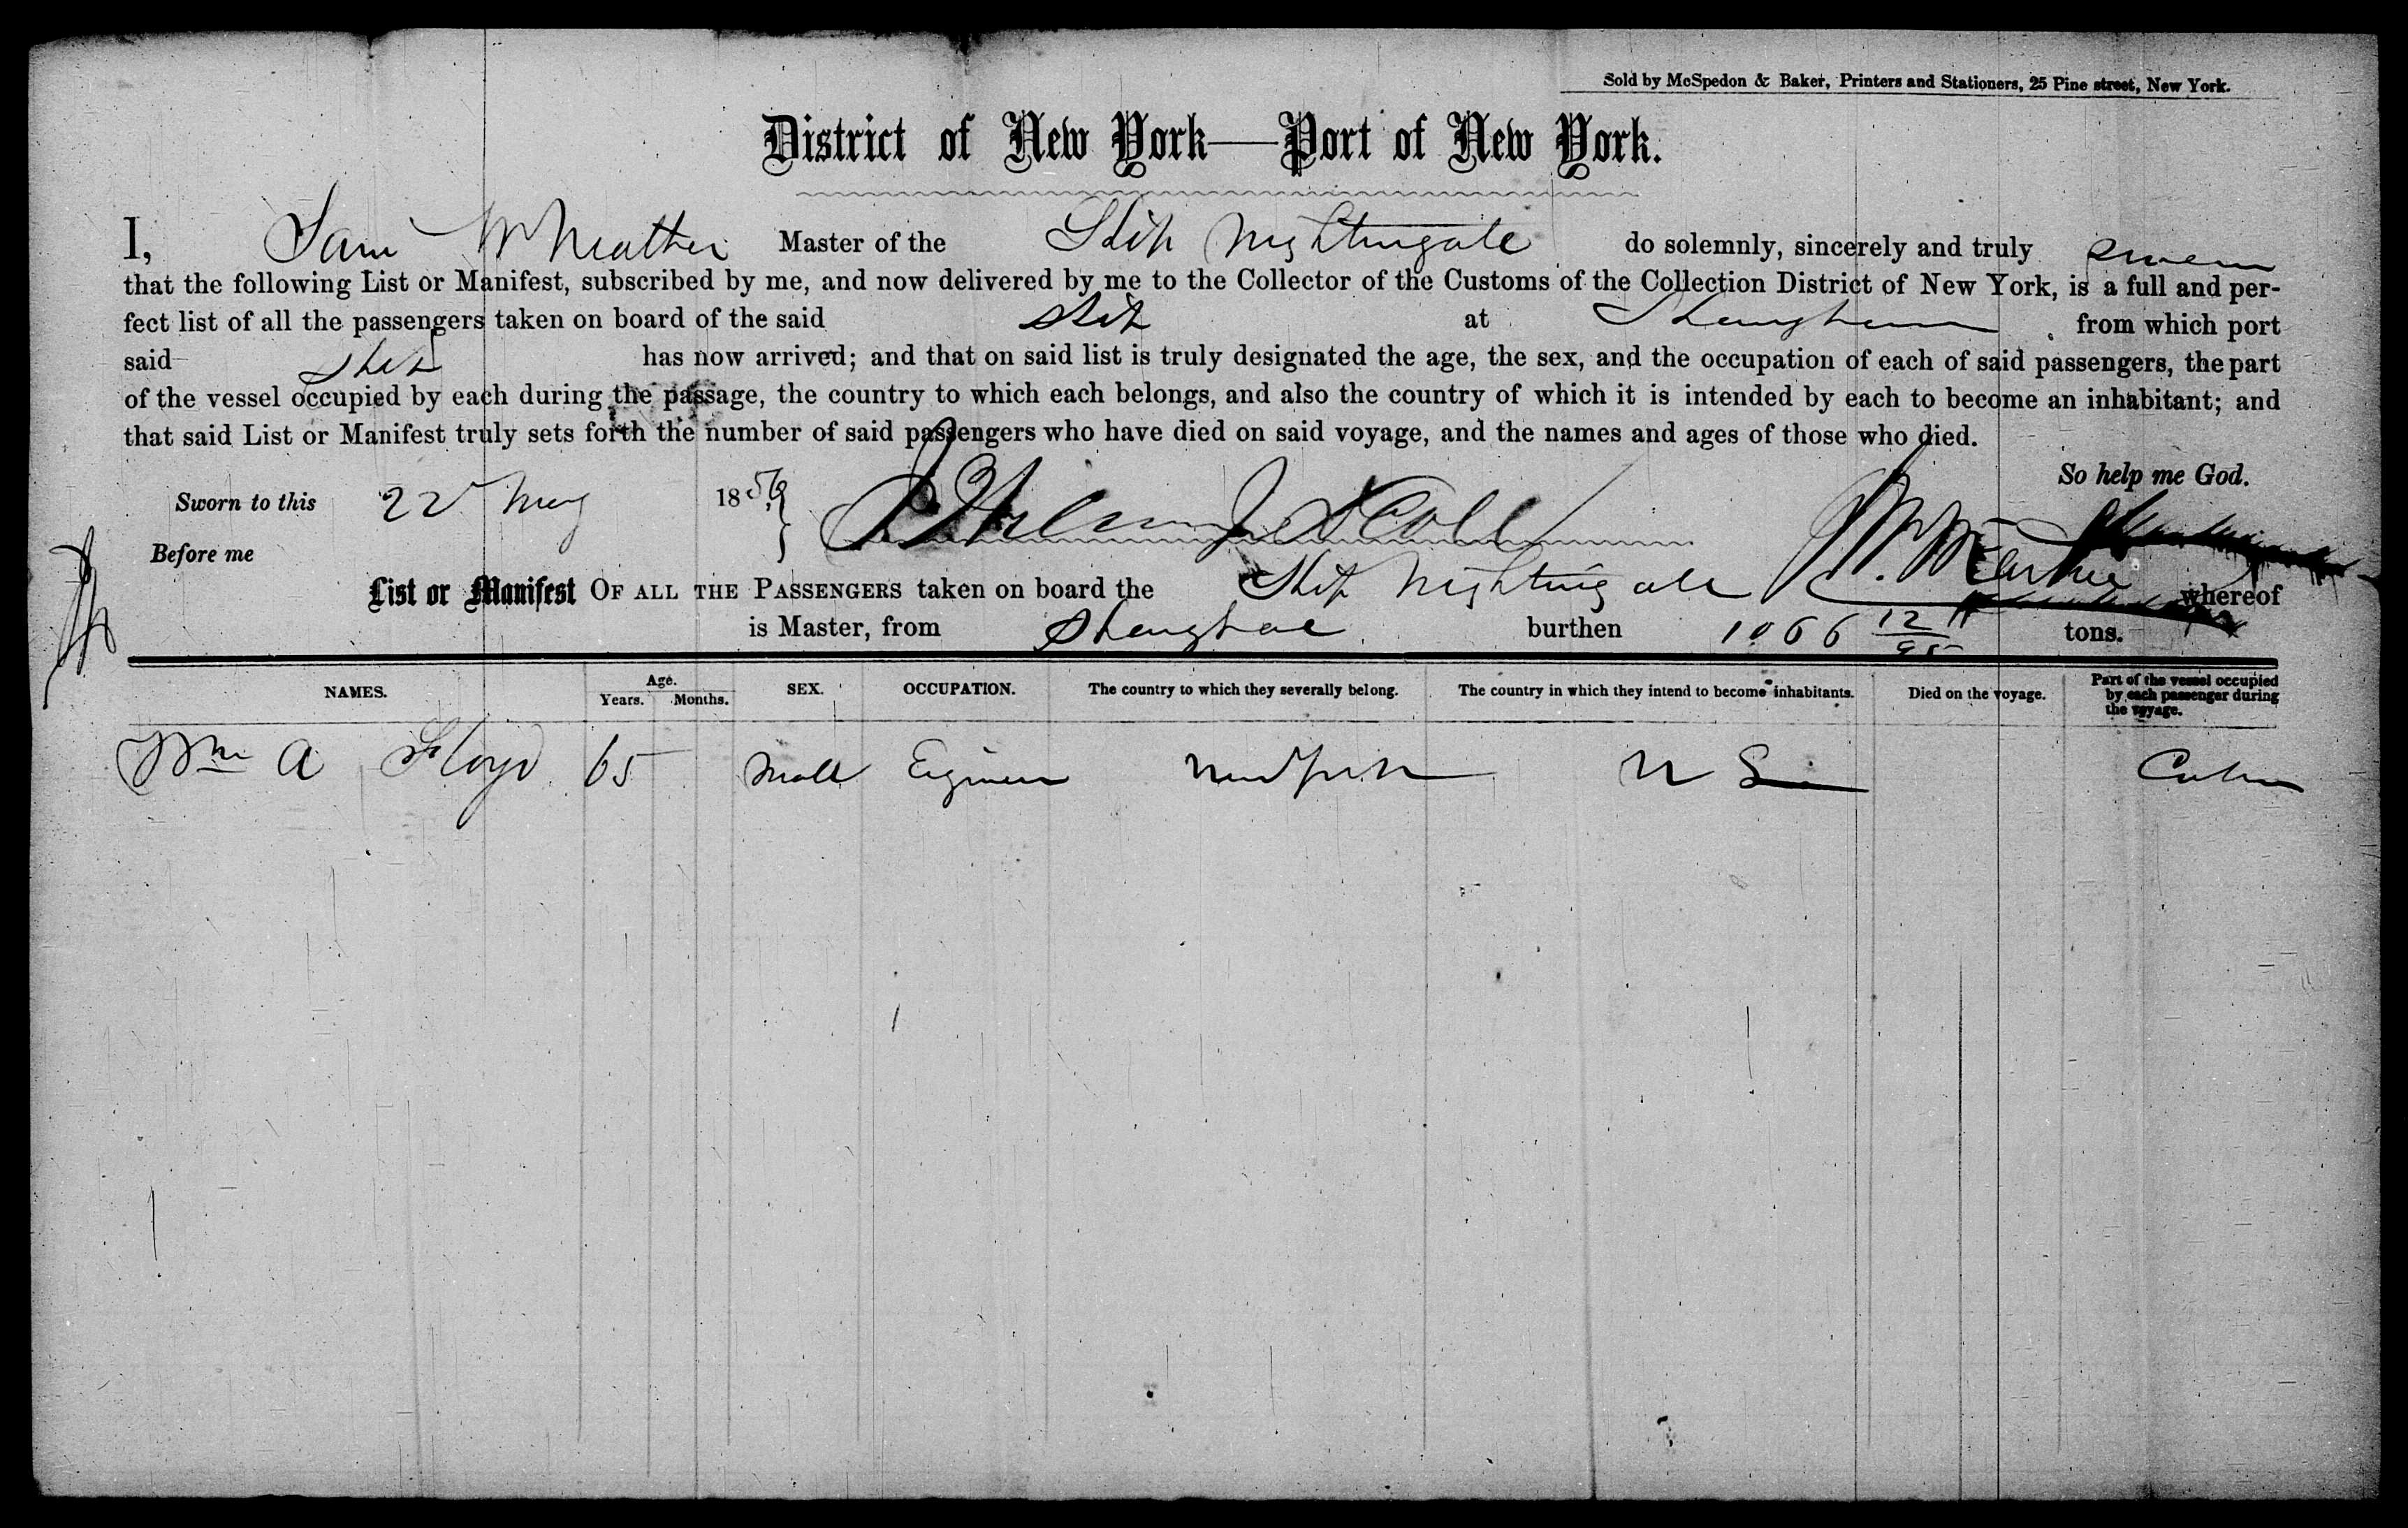 Sold by McSpedon & Baker, Printers and Stationers, 25 Pine street, New York.
District of New York—Port of New York.
I, Sam W Mather Master of the Ship Nightingale do solemnly, sincerely and truly swear
that the following List or Manifest, subscribed by me, and now delivered by me to the Collector of the Customs of the Collection District of New York, is a full and per-
fect list of all the passengers taken on board of the said Ship at Shanghae from which port
said Ship has now arrived; and that on said list is truly designated the age, the sex, and the occupation of each of said passengers, the part
of the vessel occupied by each during the passage, the country to which each belongs, and also the country of which it is intended by each to become an inhabitant; and
that said List or Manifest truly sets forth the number of said passengers who have died on said voyage, and the names and ages of those who died.
So help me God.
Sworn to this 22 May 1856
Before me
List or Manifest OF ALL THE PASSENGERS taken on board the Ship Nightingale whereof
is Master, from Shanghae burthen 1066 12/95 tons.
NAMES. Age. Years. Months. SEX. OCCUPATION. The country to which they severally belong. The country in which they intend to become inhabitants. Died on the voyage. Part of the vessel occupied by each passenger during the voyage.
Wm A Floyd 65 Male Engineer New York U S Cabin